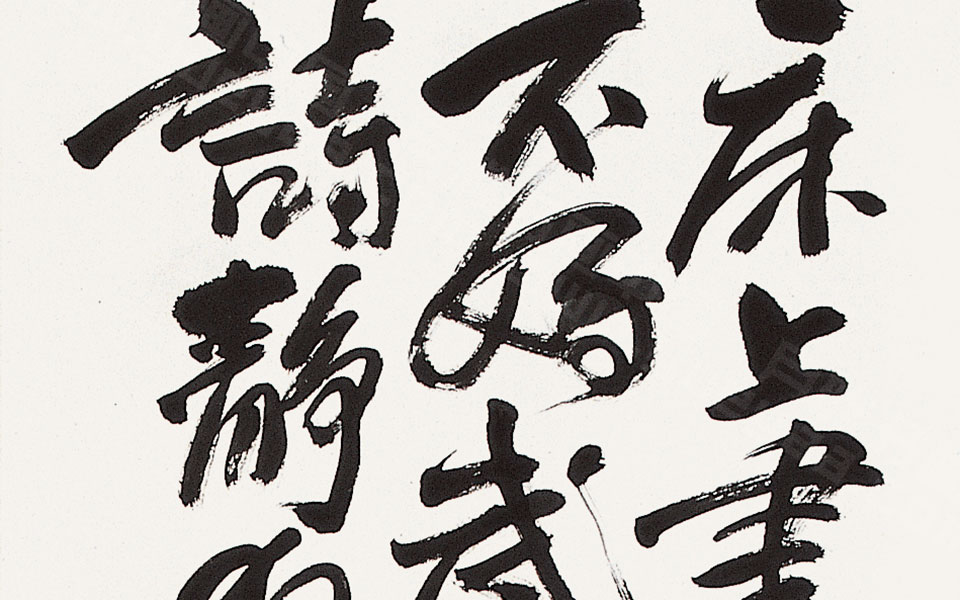 床上書
不好武
詩靜